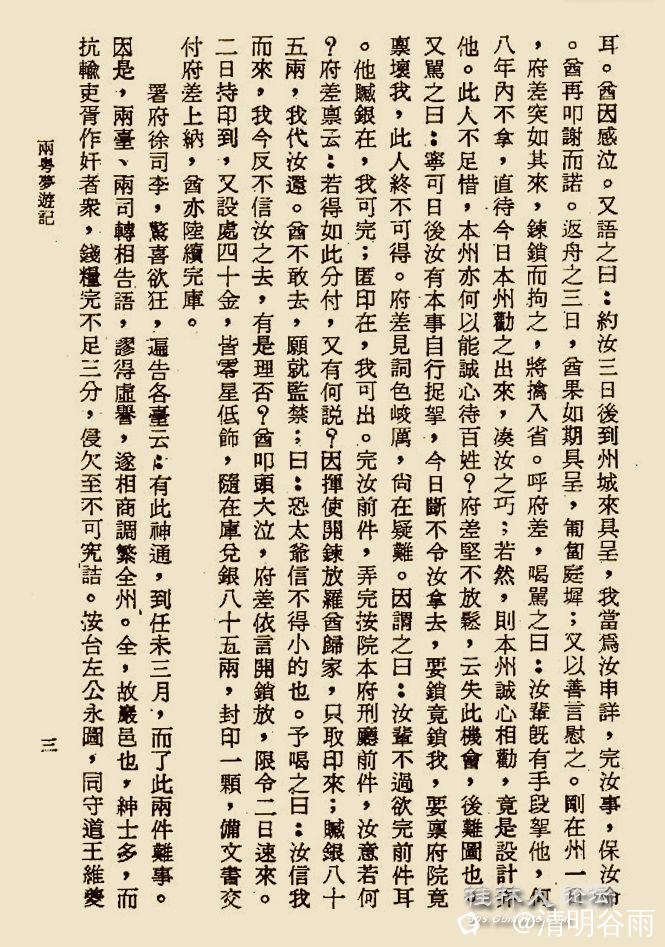 耳。酋因感泣。又語之曰：約汝三日後到州城來具呈，我當爲汝申詳，完汝事，保汝命
。酋再叩謝而諾。返舟之三日，酋果如期具呈，匍匐庭墀；又以善言慰之。剛在州一
，府差突如其來，鍊鎖而拘之，將擒入省。呼府差，喝駡之曰：汝輩旣有手段拏他，何
八年內不拿，直待今日本州勸之出來，湊汝之巧；若然，則本州誠心相勸，竟是設計
他。此人不足惜，本州亦何以能誠心待百姓？府差堅不放鬆，云失此機會，後難圖也
又駡之曰：寧可日後汝有本事自行捉拏，今日斷不令汝拿去，要鎖竟鎖我，要稟府院竟
稟壞我，此人終不可得。府差見詞色峻厲，尙在疑難。因謂之曰：汝輩不過欲完前件耳
。他贓銀在，我可完；匿印在，我可出。完汝前件，弄完按院本府刑廳前件，汝意若何
？府差稟云：若得如此分付，又有何說？因揮使開鍊放羅酋歸家，只取印來；贓銀八十
五兩，我代汝還。酋不敢去，願就監禁；曰：恐太爺信不得小的也。予喝之曰：汝信我
而來，我今反不信汝之去，有是理否？酋叩頭大泣，府差依言開鎖放，限令二日速來。
二日持印到，又設處四十金，皆零星低飾，隨在庫兌銀八十五兩，封印一顆，備文書交
付府差上納，酋亦陸續完庫。
署府徐司李，驚喜欲狂，遍告各臺云：有此神通，到任未三月，而了此兩件難事。
因是，兩臺、兩司轉相告語，謬得虛譽，遂相商調繁全州。全，故巖邑也，紳士多，而
抗輸吏胥作奸者衆，錢糧完不足三分，侵欠至不可究詰。按台左公永圖，同守道王維夔
兩粵夢遊記
三
桂林人论坛
@清明谷雨